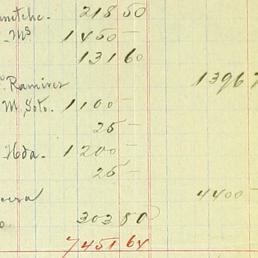 218 50
Mº 1450 —
131 60
Ramirez 1396 7
M. Soto. 1100 —
25 —
Hda. 1200 —
25 —
4400 —
303 50
7451 64